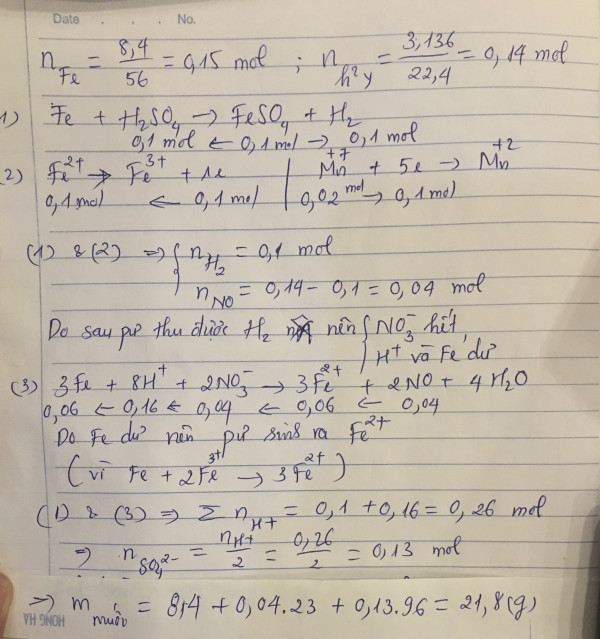 Date . . . No.
n_Fe = 8,4/56 = 0,15 mol ; n_h²y = 3,136/22,4 = 0,14 mol
1) Fe + H₂SO₄ → FeSO₄ + H₂
0,1 mol ← 0,1 mol → 0,1 mol
2) Fe²⁺ → Fe³⁺ + 1e | Mn⁺⁷ + 5e → Mn⁺²
0,1 mol ← 0,1 mol | 0,02 mol → 0,1 mol
(1) & (2) ⇒ { n_H₂ = 0,1 mol
n_NO = 0,14 - 0,1 = 0,04 mol
Do sau pư thu được H₂ nên { NO₃⁻ hết,
H⁺ và Fe dư
(3) 3Fe + 8H⁺ + 2NO₃⁻ → 3Fe²⁺ + 2NO + 4H₂O
0,06 ← 0,16 ← 0,04 ← 0,06 ← 0,04
Do Fe dư nên pư sinh ra Fe²⁺
(vì Fe + 2Fe³⁺ → 3Fe²⁺)
(1) & (3) ⇒ Σ n_H⁺ = 0,1 + 0,16 = 0,26 mol
⇒ n_SO₄²⁻ = n_H⁺/2 = 0,26/2 = 0,13 mol
⇒ m_muối = 8,4 + 0,04.23 + 0,13.96 = 21,8 (g)
HONG HA